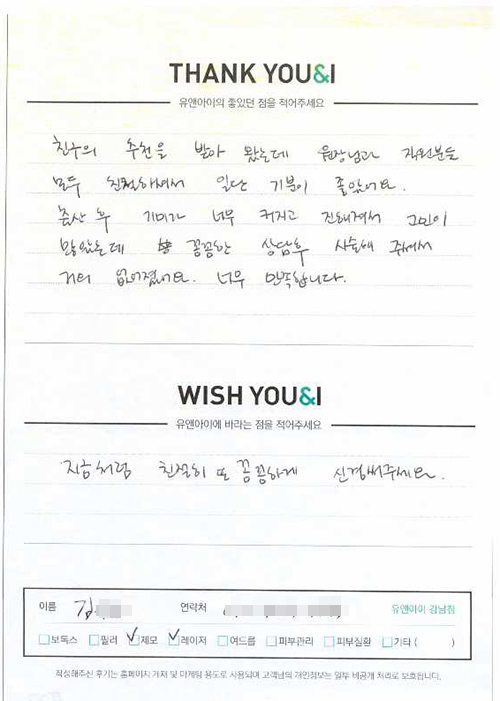 THANK YOU&I
유앤아이의 좋았던 점을 적어주세요
친구의 추천을 받아 왔는데 원장님과 직원분들
모두 친절하셔서 일단 기분이 좋았어요.
출산 후 기미가 너무 커지고 진해져서 고민이
많았는데 꼼꼼한 상담후 시술해 주셔서
거의 없어졌어요. 너무 만족합니다.
WISH YOU&I
유앤아이에 바라는 점을 적어주세요
지금처럼 친절히 또 꼼꼼하게 신경써주세요.
이름 김 연락처 유앤아이 강남점
보톡스 필러 제모 레이저 여드름 피부관리 피부질환 기타 ( )
작성해주신 후기는 홈페이지 게재 및 마케팅 용도로 사용되며 고객님의 개인정보는 일부 비공개 처리로 보호됩니다.